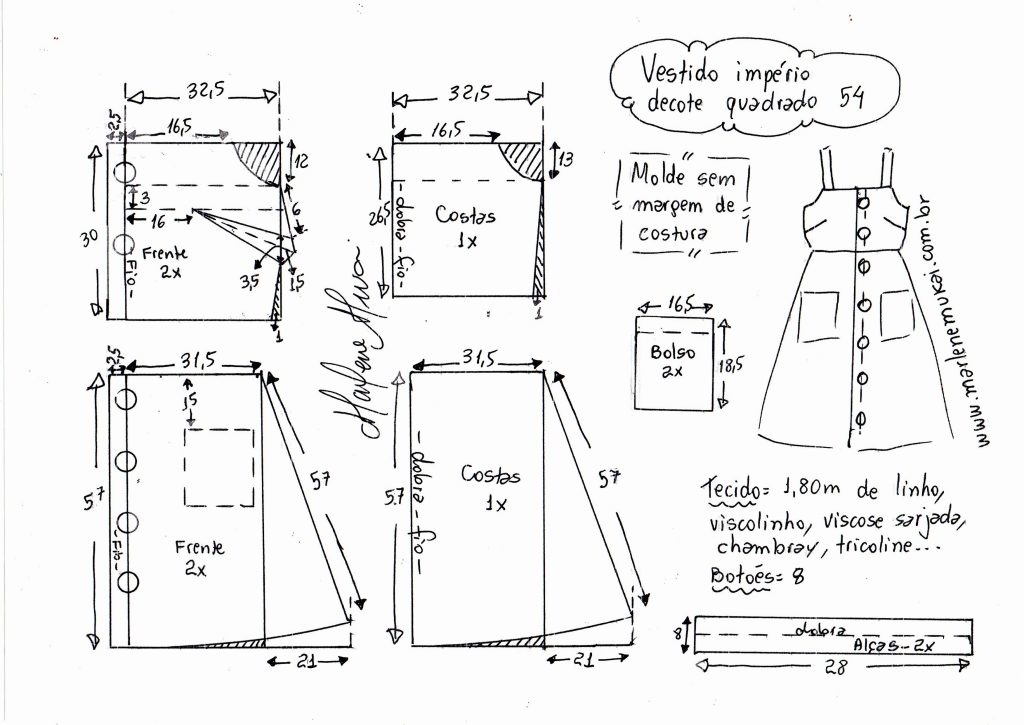 Vestido império
decote quadrado 54
Molde sem
margem de
costura
www.marlenemukai.com.br
32,5
2,5
16,5
12
3
16
6
30
Frente
2x
-Fio-
3,5
1,5
1
32,5
16,5
13
26,5
- dobra - fio -
Costas
1x
1
16,5
Bolso
2x
18,5
2,5
31,5
15
57
57
-Fio-
Frente
2x
21
31,5
57
- dobra - fio -
Costas
1x
57
21
Tecido= 1,80m de linho,
viscolinho, viscose sarjada,
chambray, tricoline...
Botões= 8
8
dobra
Alças-2x
28